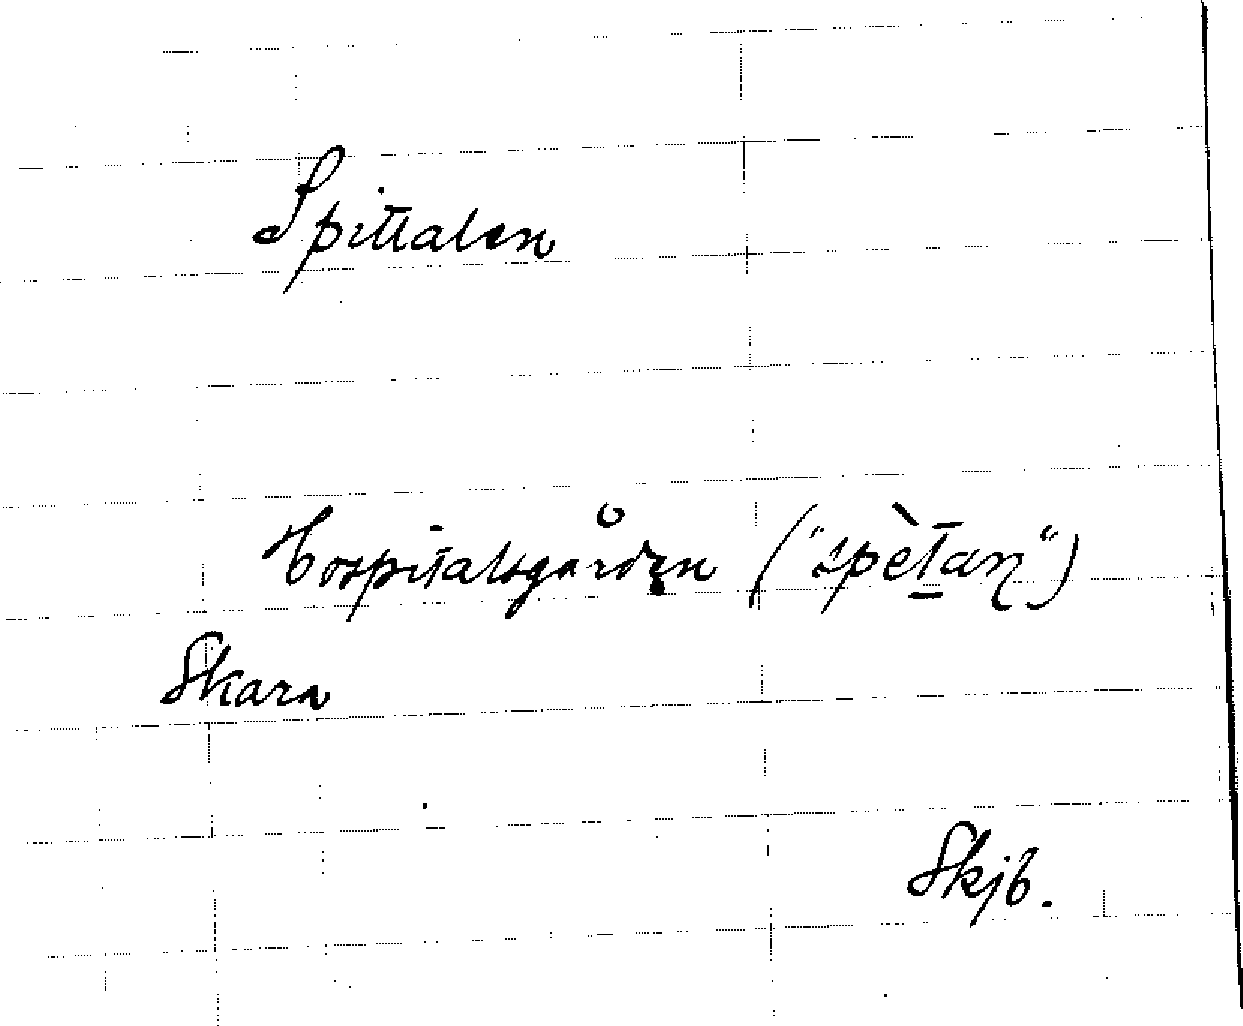 Spittalen
Hospitalsgården ("spètaṉ")
Skara
Skjb.